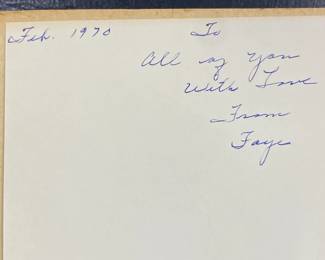 Feb. 1970
To
All of you
With Love
From
Faye